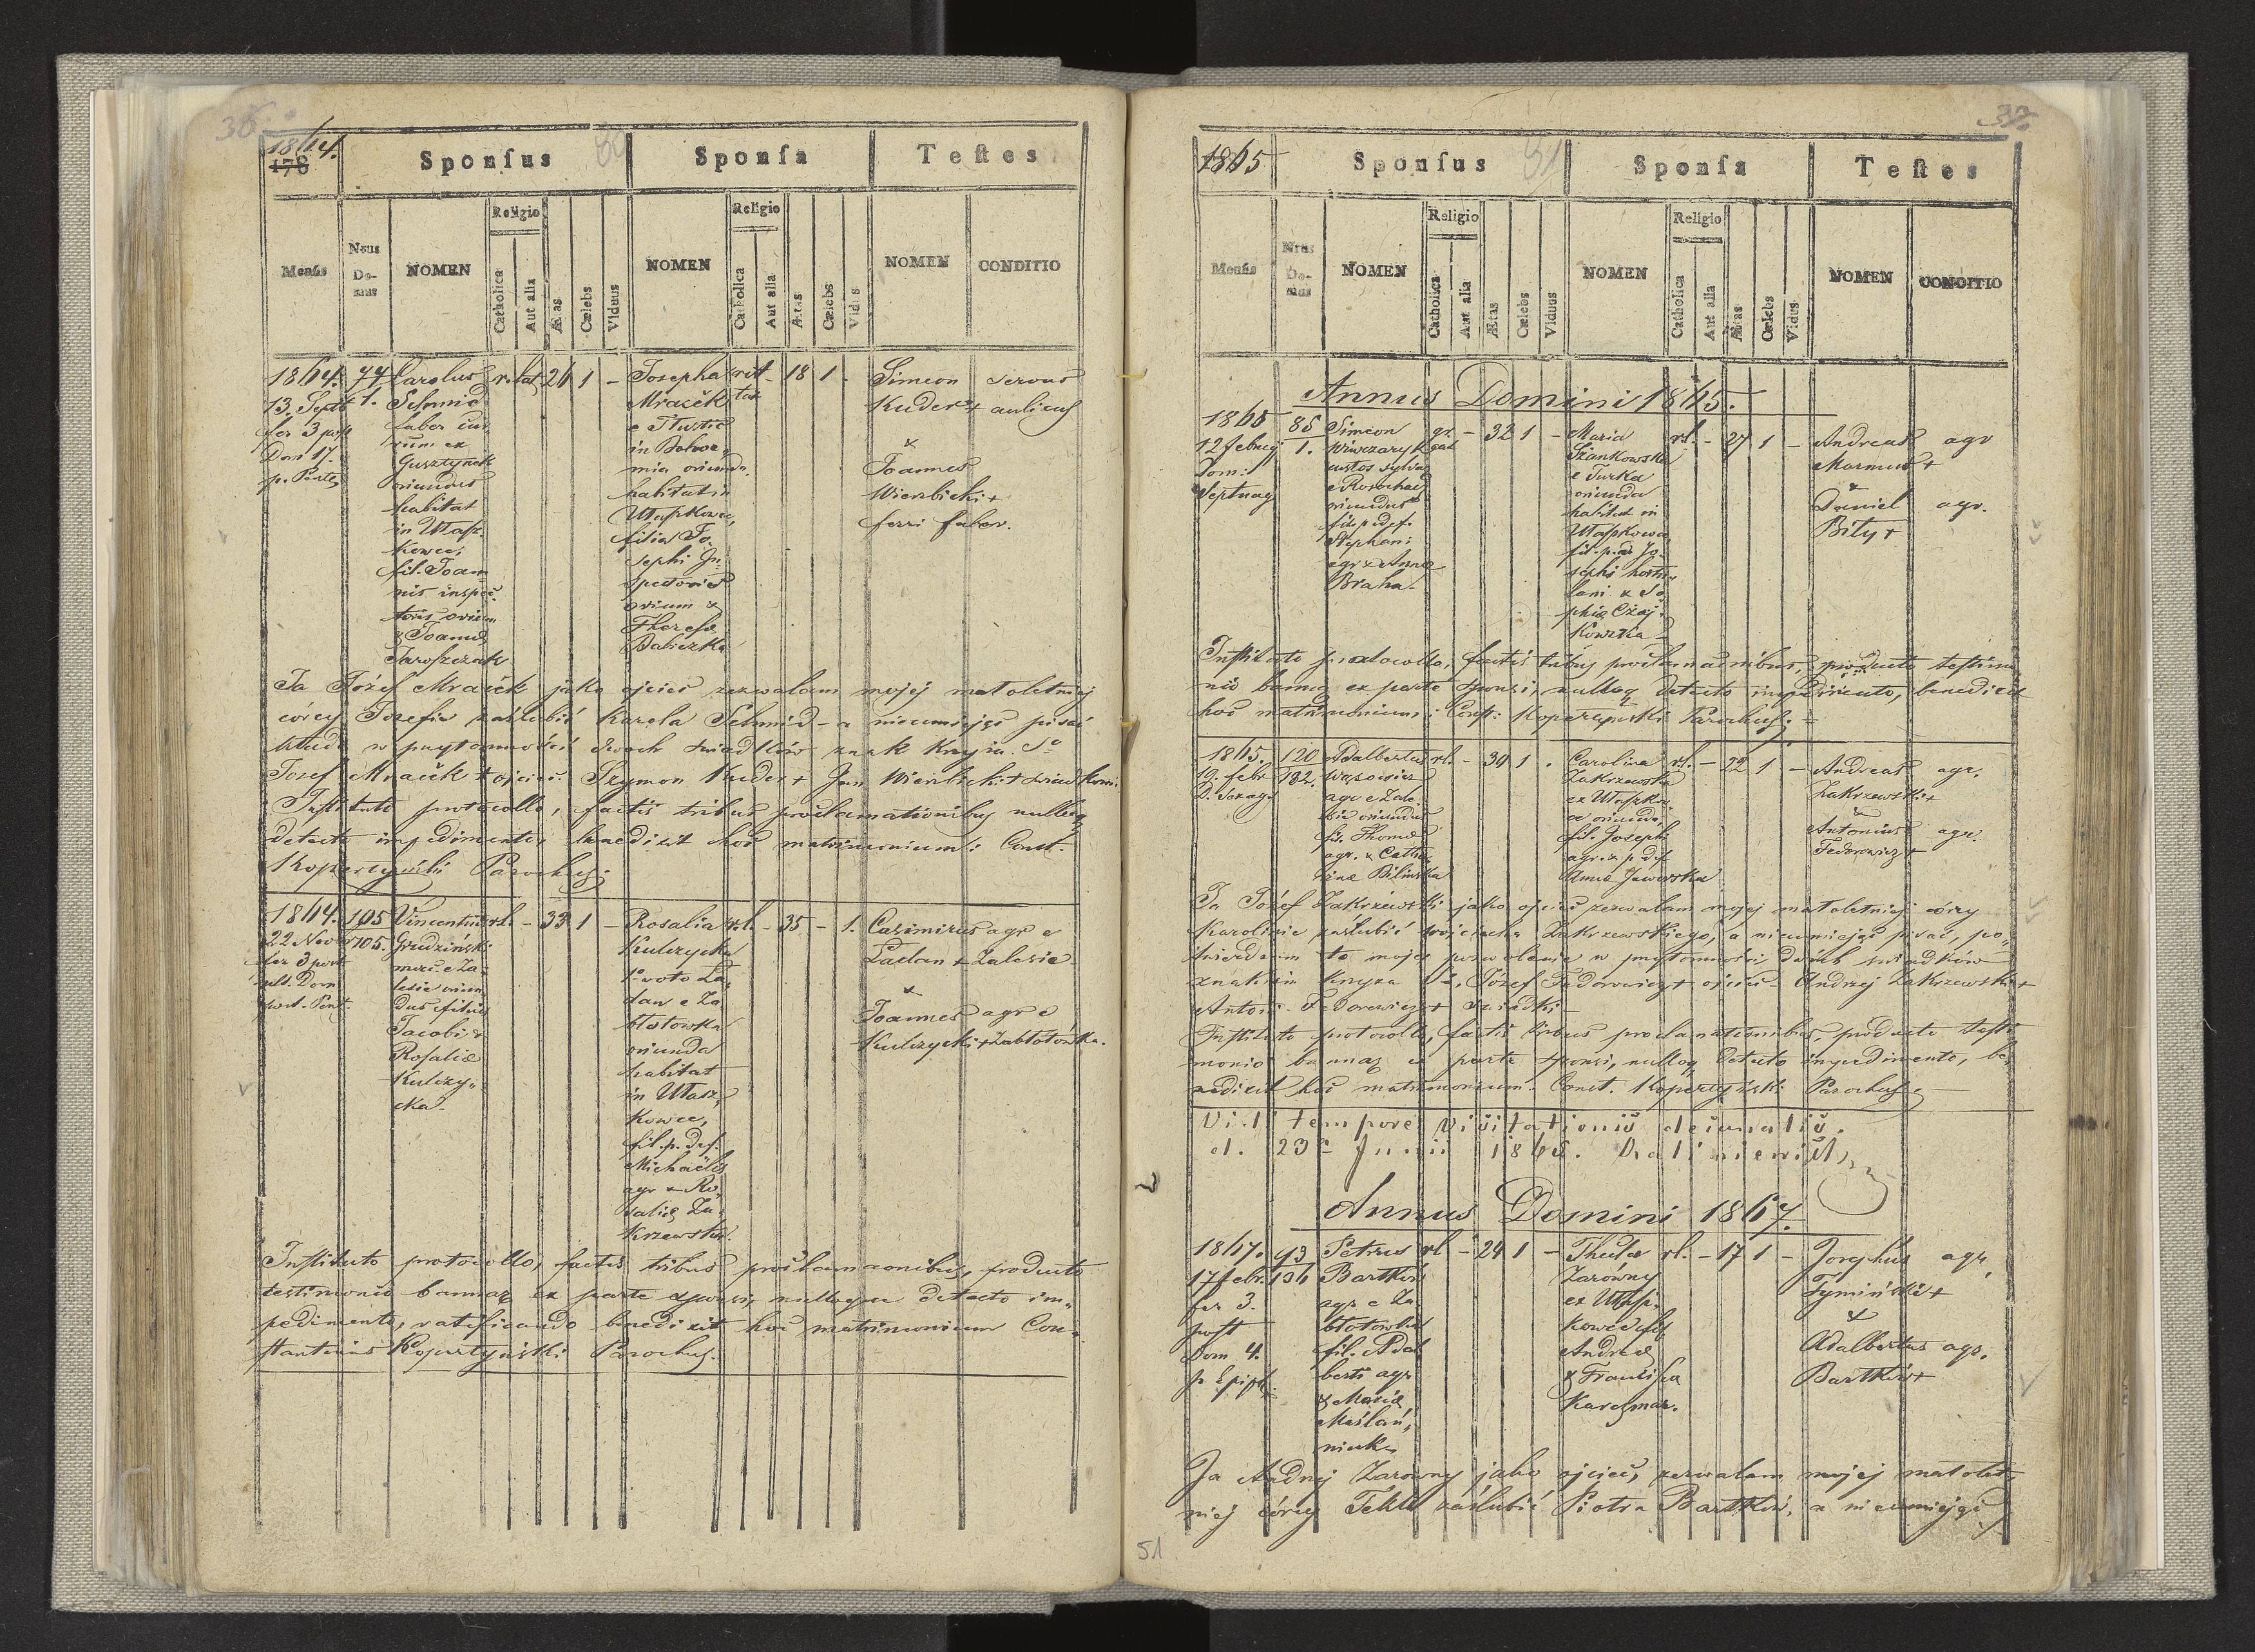 36.
1864.
178
Sponſus
Sponſa
Teſtes
Menſis
Nrus Domus
NOMEN
Religio
Catholica
Aut alia
Ætas
Cælebs
Viduus
NOMEN
Religio
Catholica
Aut alia
Ætas
Cælebs
Vidua
NOMEN
CONDITIO
1864.
13. Septb
fer 3 post
Dom 17.
p. Pentec
77
1.
Carolus
Schmid
faber
ex
Gusztynek
oriundus
habitat
in Ułasz
kowce,
fil. Joan
nis inspec
toris ovium
& Joannæ
Jaroszczak
r. lat
26
1
-
Josepha
Mraček
e Tlustic
in Bohoe
mia oriunda
habitat in
Ułaszkowce,
filia Jo
sephi In
spectoris
ovium &
Theresæ
Babiczka
rit
lat
-
18
1
-
Simeon
Kuder +
&
Joannes
Wierzbicki +
ferri faber.
servus
aulicus
Ja Józef Mraček jako ojciec zezwalam mojej małoletniej
córce Jozefie zaślubić Karola Schmid - a nieumiejąc pisać
kładę w przytomności dwoch świadków znak krzyża
Josef Mraček + ojciec. Szymon Kuder + Jan Wierzbicki + świadkowie
Instituto protocollo, factis tribus proclamationibus nulloq
detecto impedimento, benedixit hoc matrimonium: Const.
Kopertyński Parochus
1864.
22 Novbr
fer 3 post
ult. Dom
post. Pent.
105
105.
Vincentius
Grudziński
e Za
lesie oriun
dus filius
Jacobi &
Rosaliæ
Kulczy
cka -
rl.
-
33
1
-
Rosalia
Kulczycka
1º voto Ła
dan e Za
błotowka
oriunda
habitat
in Ułasz
kowce,
fil. p. def.
Michaelis
agr & Ro
saliæ Za
krzewska.
rl.
-
35
-
1.
Casimirus
Ładan +
&
Joannes
Kulczycki +
agr e
Zalesie
agr e
Zabłotówka.
Instituto protocollo, factis tribus proclamaonibus, producto
testimonio bannaz ex parte sponsi, nulloque detecto im
pedimento, ratificando benedixit hoc matrimonium Con
stantinus Kopertyński Parochus.
37.
1865
Sponſus
Sponſa
Teſtes
Menſis
Nrus Domus
NOMEN
Religio
Catholica
Aut alia
Ætas
Cælebs
Viduus
NOMEN
Religio
Catholica
Aut alia
Ætas
Cælebs
Vidua
NOMEN
CONDITIO
Annus Domini 1865.
1865
12 Februy
Dom:
Septuag
85
1.
Simeon
Wiwczaryk
custos sylva
e Rosochacz
oriundus
fil. p def.
Stephani
agr & Annæ
Braha -
gr.
cat
-
32
1
-
Maria
Stankowska
e Turka
oriunda
habitat in
Ułaszkowce
fil. p. def Jo
sephi hortu
lani & So
phiæ Czaj
kowska -
rl.
-
27
1
-
Andreas
Marmus +
&
Daniel
Biły +
agr
agr.
Instituto protocollo, factis tribus proclamaonibus, producto testimo
nio bannaz ex parte sponsi, nulloq detecto impedimento, benedixit
hoc matrimonium: Const: Kopertyński Parochus. =
1865.
19. febr
D. Sexag.
120
182.
Adalbertus
Wąsowicz
agr e Zale
sie oriundus
fil. Thomæ
agr. & Catha
rinæ Bilinska
rl.
-
30
1
.
Carolina
Zakrzewska
ex Ułaszkow
ce oriunda,
fil. Josephi
agr. & p. def
Annæ Jaworska
rl.
-
22
1
-
Andreas
Zakrzewski +
&
Antonius
Fedorowicz +
agr.
agr.
Ja Józef Zakrzewski jako ojciec zezwalam mojej małoletniej córcy
Karolinie zaślubić Wojciecha Zakrzewskiego, a nieumiejąc pisać, po
twierdzam to moje pozwolenie w przytomności dwóch świadków
znakiem krzyża Józef Fedorowicz + ojciec - Andrzej Zakrzewski +
Antoni Fedorowicz + świadki -
Instituto protocollo, factis tribus proclamationibus, producto testi
monio bannaz ex parte sponsi, nulloq detecto impedimento, be
nedixit hoc matrimonium. Const. Kopertyński Parochus -
Vidi tempore visitationis decanalis.
d. 23 Junii 1865.
Annus Domini 1867.
1867.
17 febr.
fer 3.
post
Dom 4.
p Epiph.
93
106
Petrus
Bartków
agr e Za
błotowka
fil. Adal
berti agr
& Mariæ
Maślan
niuk -
rl
-
24
1
-
Thecla
Zarówny
ex Ułasz
kowce fil
Andreæ
& Franciska
Karczmar.
rl.
-
17
1
-
Josephus
Tymiński +
&
Adalbertus
Bartków +
agr,
agr.
Ja Andrzej Zarowny jako ojciec, zezwalam mojej małolet
niej córcy Tekli zaślubić Piotra Bartków, a nieumiejąc
51